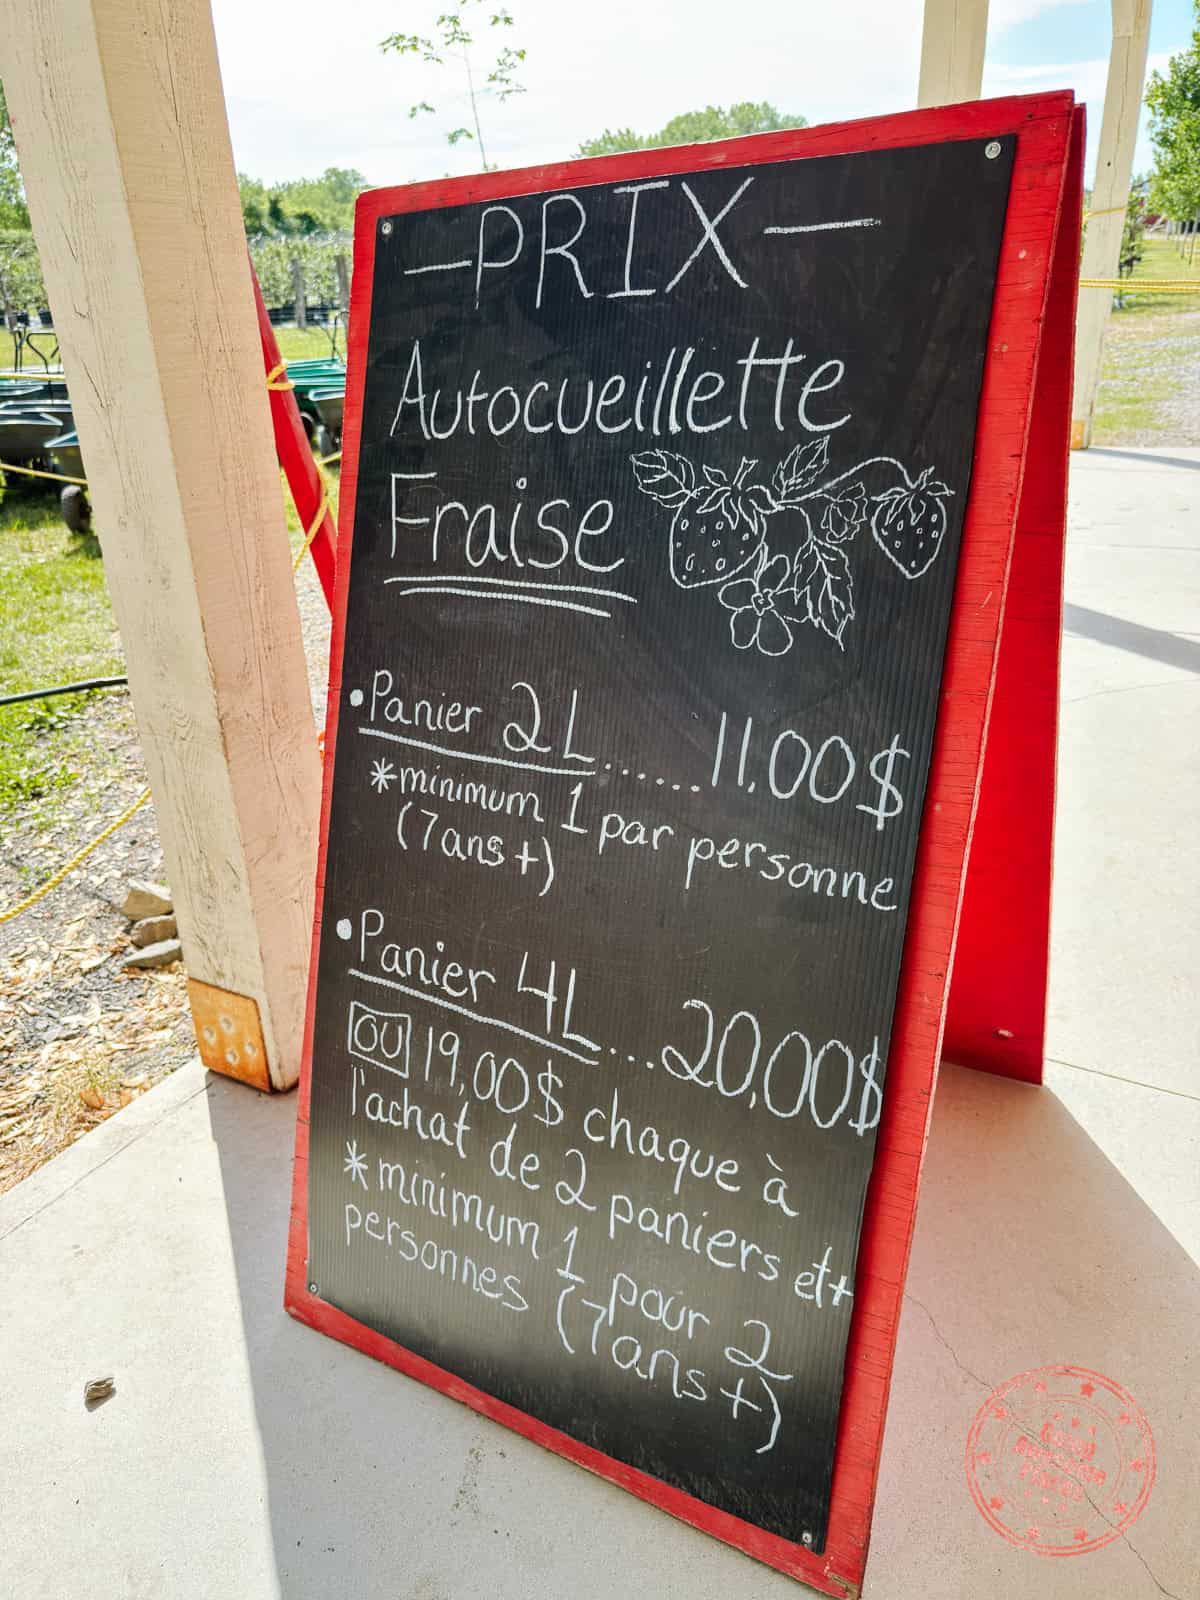 —PRIX—
Autocueillette
Fraise
•Panier 2L......11.00$
*minimum 1 par personne
(7ans+)
•Panier 4L...20,00$
OU 19,00$ chaque à
l'achat de 2 paniers et+
*minimum 1 pour 2
personnes (7ans+)
Going
Awesome
Places